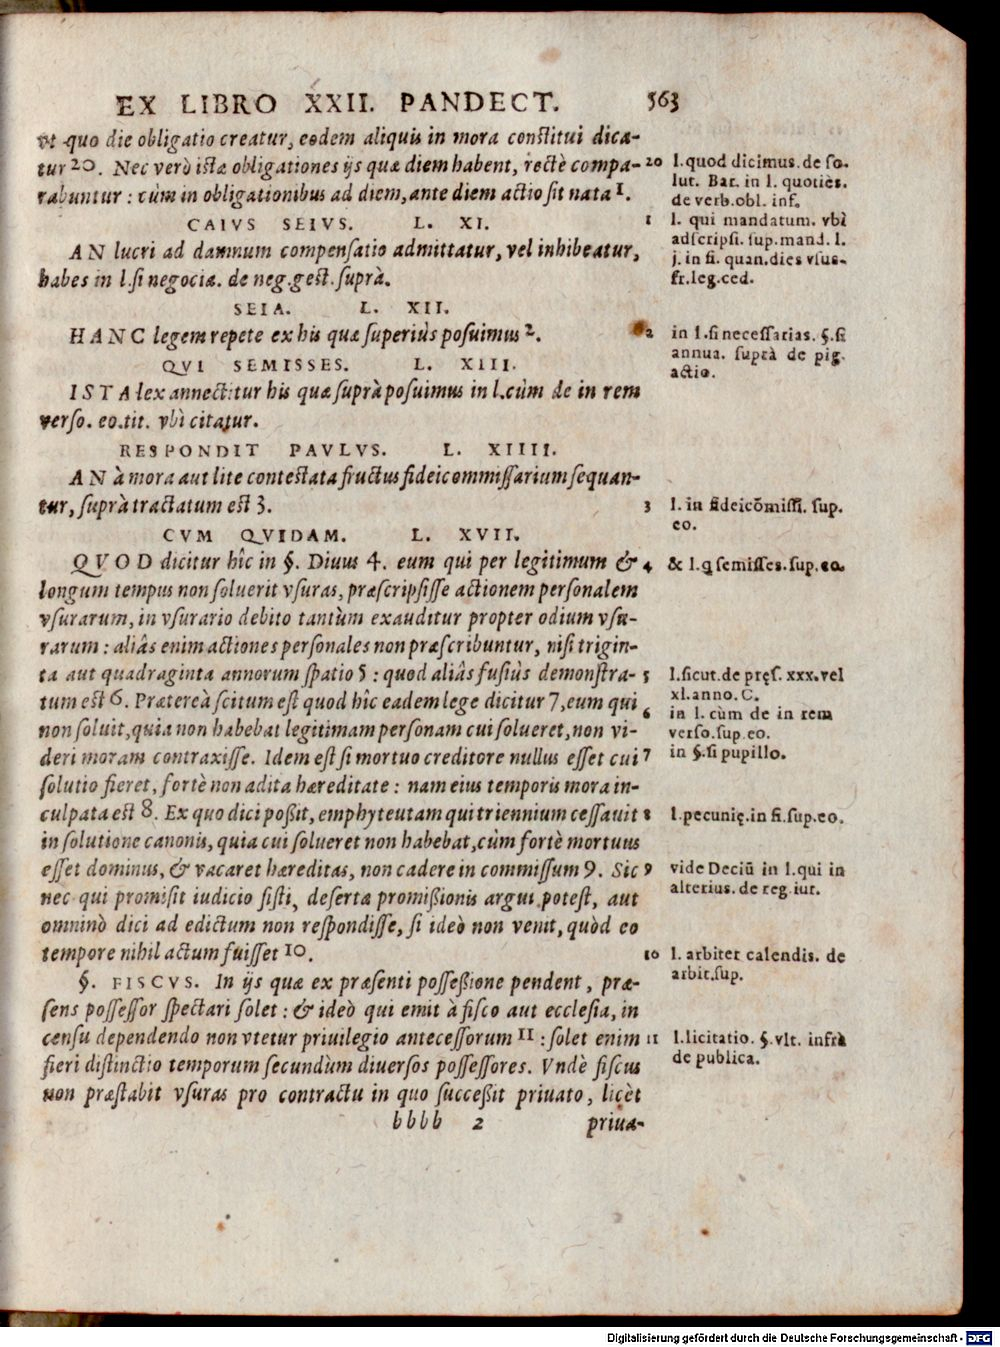 EX LIBRO XXII. PANDECT. 563
vt quo die obligatio creatur, eodem aliquis in mora constitui dica-
tur 20. Nec verò istæ obligationes ijs quæ diem habent, rectè compa-
rabuntur: cùm in obligationibus ad diem, ante diem actio sit nata 1.
CAIVS SEIVS. L. XI.
AN lucri ad damnum compensatio admittatur, vel inhibeatur,
habes in l. si negocia. de neg. gest. suprà.
SEIA. L. XII.
HANC legem repete ex his quæ superiùs posuimus 2.
QVI SEMISSES. L. XIII.
ISTA lex annectitur his quæ suprà posuimus in l. cùm de in rem
verso. eo. tit. vbì citatur.
RESPONDIT PAVLVS. L. XIIII.
AN à mora aut lite contestata fructus fideicommissarium sequan-
tur, suprà tractatum est 3.
CVM QVIDAM. L. XVII.
QVOD dicitur hîc in §. Diuus 4. eum qui per legitimum &
longum tempus non soluerit vsuras, præscripsisse actionem personalem
vsurarum, in vsurario debito tantùm exauditur propter odium vsu-
rarum: aliâs enim actiones personales non præscribuntur, nisi trigin-
ta aut quadraginta annorum spatio 5: quod aliâs fusiùs demonstra-
tum est 6. Prætereà scitum est quod hîc eadem lege dicitur 7, eum qui
non soluit, quia non habebat legitimam personam cui solueret, non vi-
deri moram contraxisse. Idem est si mortuo creditore nullus esset cui
solutio fieret, fortè non adita hæreditate: nam eius temporis mora in-
culpata est 8. Ex quo dici poßit, emphyteutam qui triennium cessauit
in solutione canonis, quia cui solueret non habebat, cùm fortè mortuus
esset dominus, & vacaret hæreditas, non cadere in commissum 9. Sic
nec qui promisit iudicio sisti, desertæ promißionis argui potest, aut
omninò dici ad edictum non respondisse, si ideò non venit, quòd eo
tempore nihil actum fuisset 10.
§. FISCVS. In ijs quæ ex præsenti posseßione pendent, præ-
sens possessor spectari solet: & ideò qui emit à fisco aut ecclesia, in
censu dependendo non vtetur priuilegio antecessorum 11: solet enim
fieri distinctio temporum secundùm diuersos possessores. Vndè fiscus
non præstabit vsuras pro contractu in quo succeßit priuato, licèt
bbbb 2 priua-
20 l. quod dicimus. de so.
lut. Bar. in l. quotiès.
de verb. obl. inf.
1 l. qui mandatum. vbì
adscripsi. sup. mand. l.
j. in fi. quan. dies vsus-
fr. leg. ced.
2 in l. si necessarias. §. si
annua. suprà de pig.
actio.
3 l. in fideicõmissi. sup.
eo.
4 & l. q semisses. sup. eo.
5 l. sicut. de pręs. xxx. vel
xl. anno. C.
6 in l. cùm de in rem
verso. sup. eo.
7 in §. si pupillo.
8 l. pecunię. in fi. sup. eo.
9 vide Deciũ in l. qui in
alterius. de reg. iur.
10 l. arbiter calendis. de
arbit. sup.
11 l. licitatio. §. vlt. infrà
de publica.
Digitalisierung gefördert durch die Deutsche Forschungsgemeinschaft - DFG